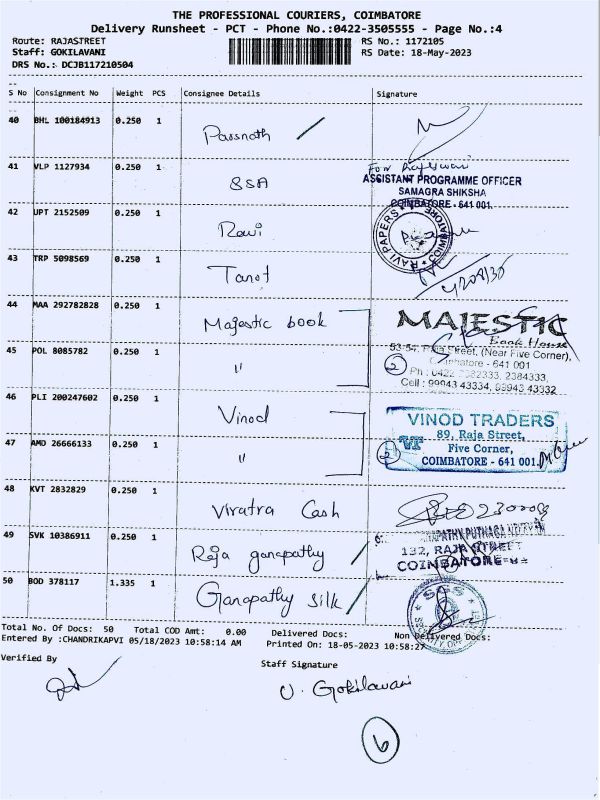 THE PROFESSIONAL COURIERS, COIMBATORE
Delivery Runsheet - PCT - Phone No.:0422-3505555 - Page No.:4
Route: RAJASTREET RS No.: 1172105
Staff: GOKILAVANI RS Date: 18-May-2023
DRS No.: DCJB117210504
S No Consignment No Weight PCS Consignee Details Signature
40 BHL 100184913 0.250 1 Parsnath
41 VLP 1127934 0.250 1 SSA
For
ASSISTANT PROGRAMME OFFICER
SAMAGRA SHIKSHA
COIMBATORE - 641 001.
42 UPT 2152509 0.250 1 Ravi
RAVI PAPERS COIMBATORE
43 TRP 5098569 0.250 1
44 MAA 292782828 0.250 1 Majestic book
MAJESTIC
Book House
53-54, Raja Street, (Near Five Corner),
Coimbatore - 641 001
45 POL 8085782 0.250 1 "
2
Ph : 0422 2382333, 2384333,
Cell : 99943 43334, 99943 43332
46 PLI 200247602 0.250 1 Vinod
VINOD TRADERS
89, Raja Street,
47 AMD 26666133 0.250 1 "
2 VT
Five Corner,
COIMBATORE - 641 001.
48 KVT 2832829 0.250 1 Viratra Cash
49 SVK 10386911 0.250 1 Raja ganapathy
132, RAJA STREET
COIMBATORE
50 BOD 378117 1.335 1 Ganapathy silk
Total No. Of Docs: 50 Total COD Amt: 0.00 Delivered Docs: Non Delivered Docs:
Entered By :CHANDRIKAPVI 05/18/2023 10:58:14 AM Printed On: 18-05-2023 10:58:27
Verified By Staff Signature
V. Gokilavani
6